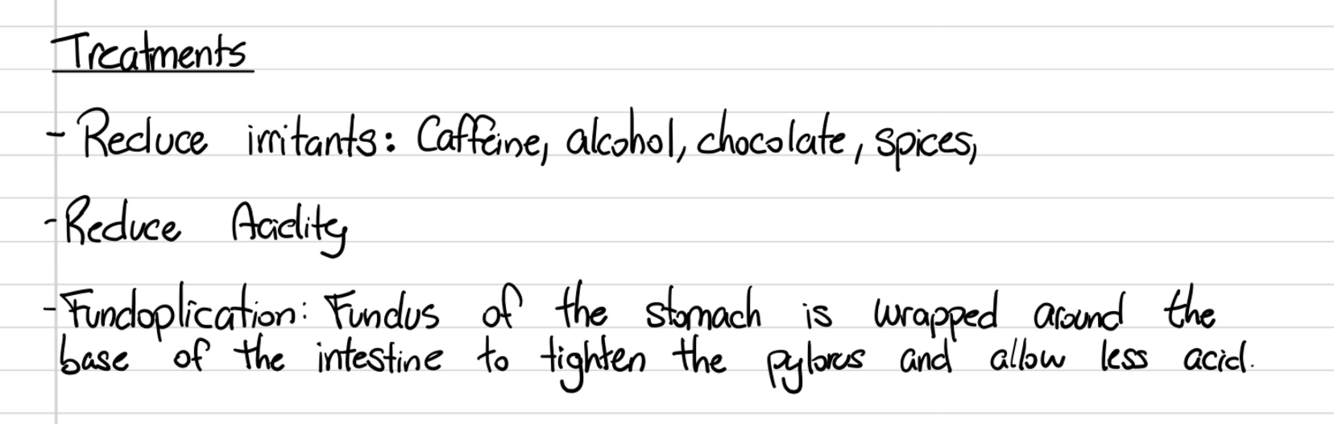 Treatments
- Reduce irritants: Caffeine, alcohol, chocolate, spices,
- Reduce Acidity
- Fundoplication: Fundus of the stomach is wrapped around the
base of the intestine to tighten the pylorus and allow less acid.